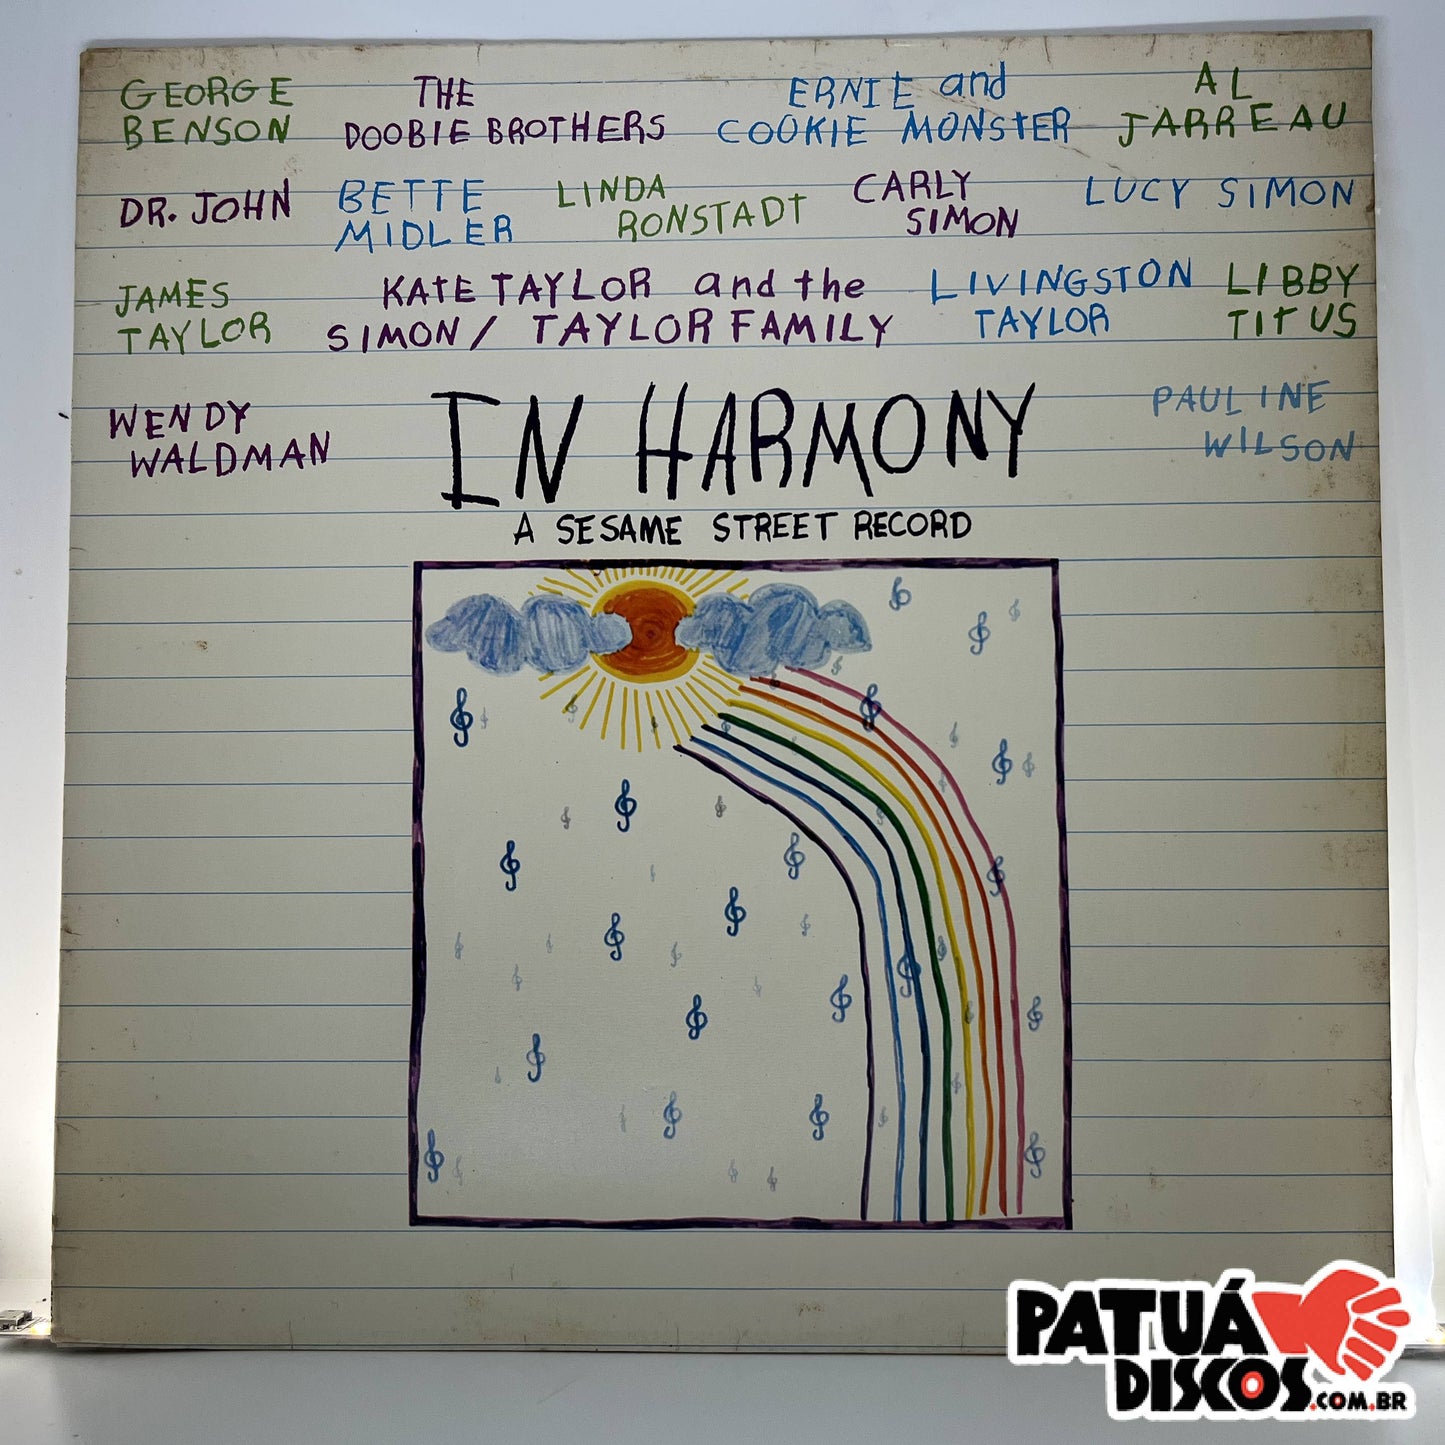 GEORGE
BENSON
THE
DOOBIE BROTHERS
ERNIE and
COOKIE MONStER
AL
JARREAU
DR. JOHN
BETTE
MIDLER
LINDA
RONSTADt
CARLY
SIMON
LUCY SIMON
JAMES
TAYLOR
KAtE TAYLOR and the
SIMON/ TAYLOR FAMILY
LIVINGSTON
TAYLOR
LIBBY
TITUS
WENDY
WALDMAN
IN HARMONY
PAULINE
WILSON
A SESAME STREET RECORD
PATUÁ
DISCOS.COM.BR